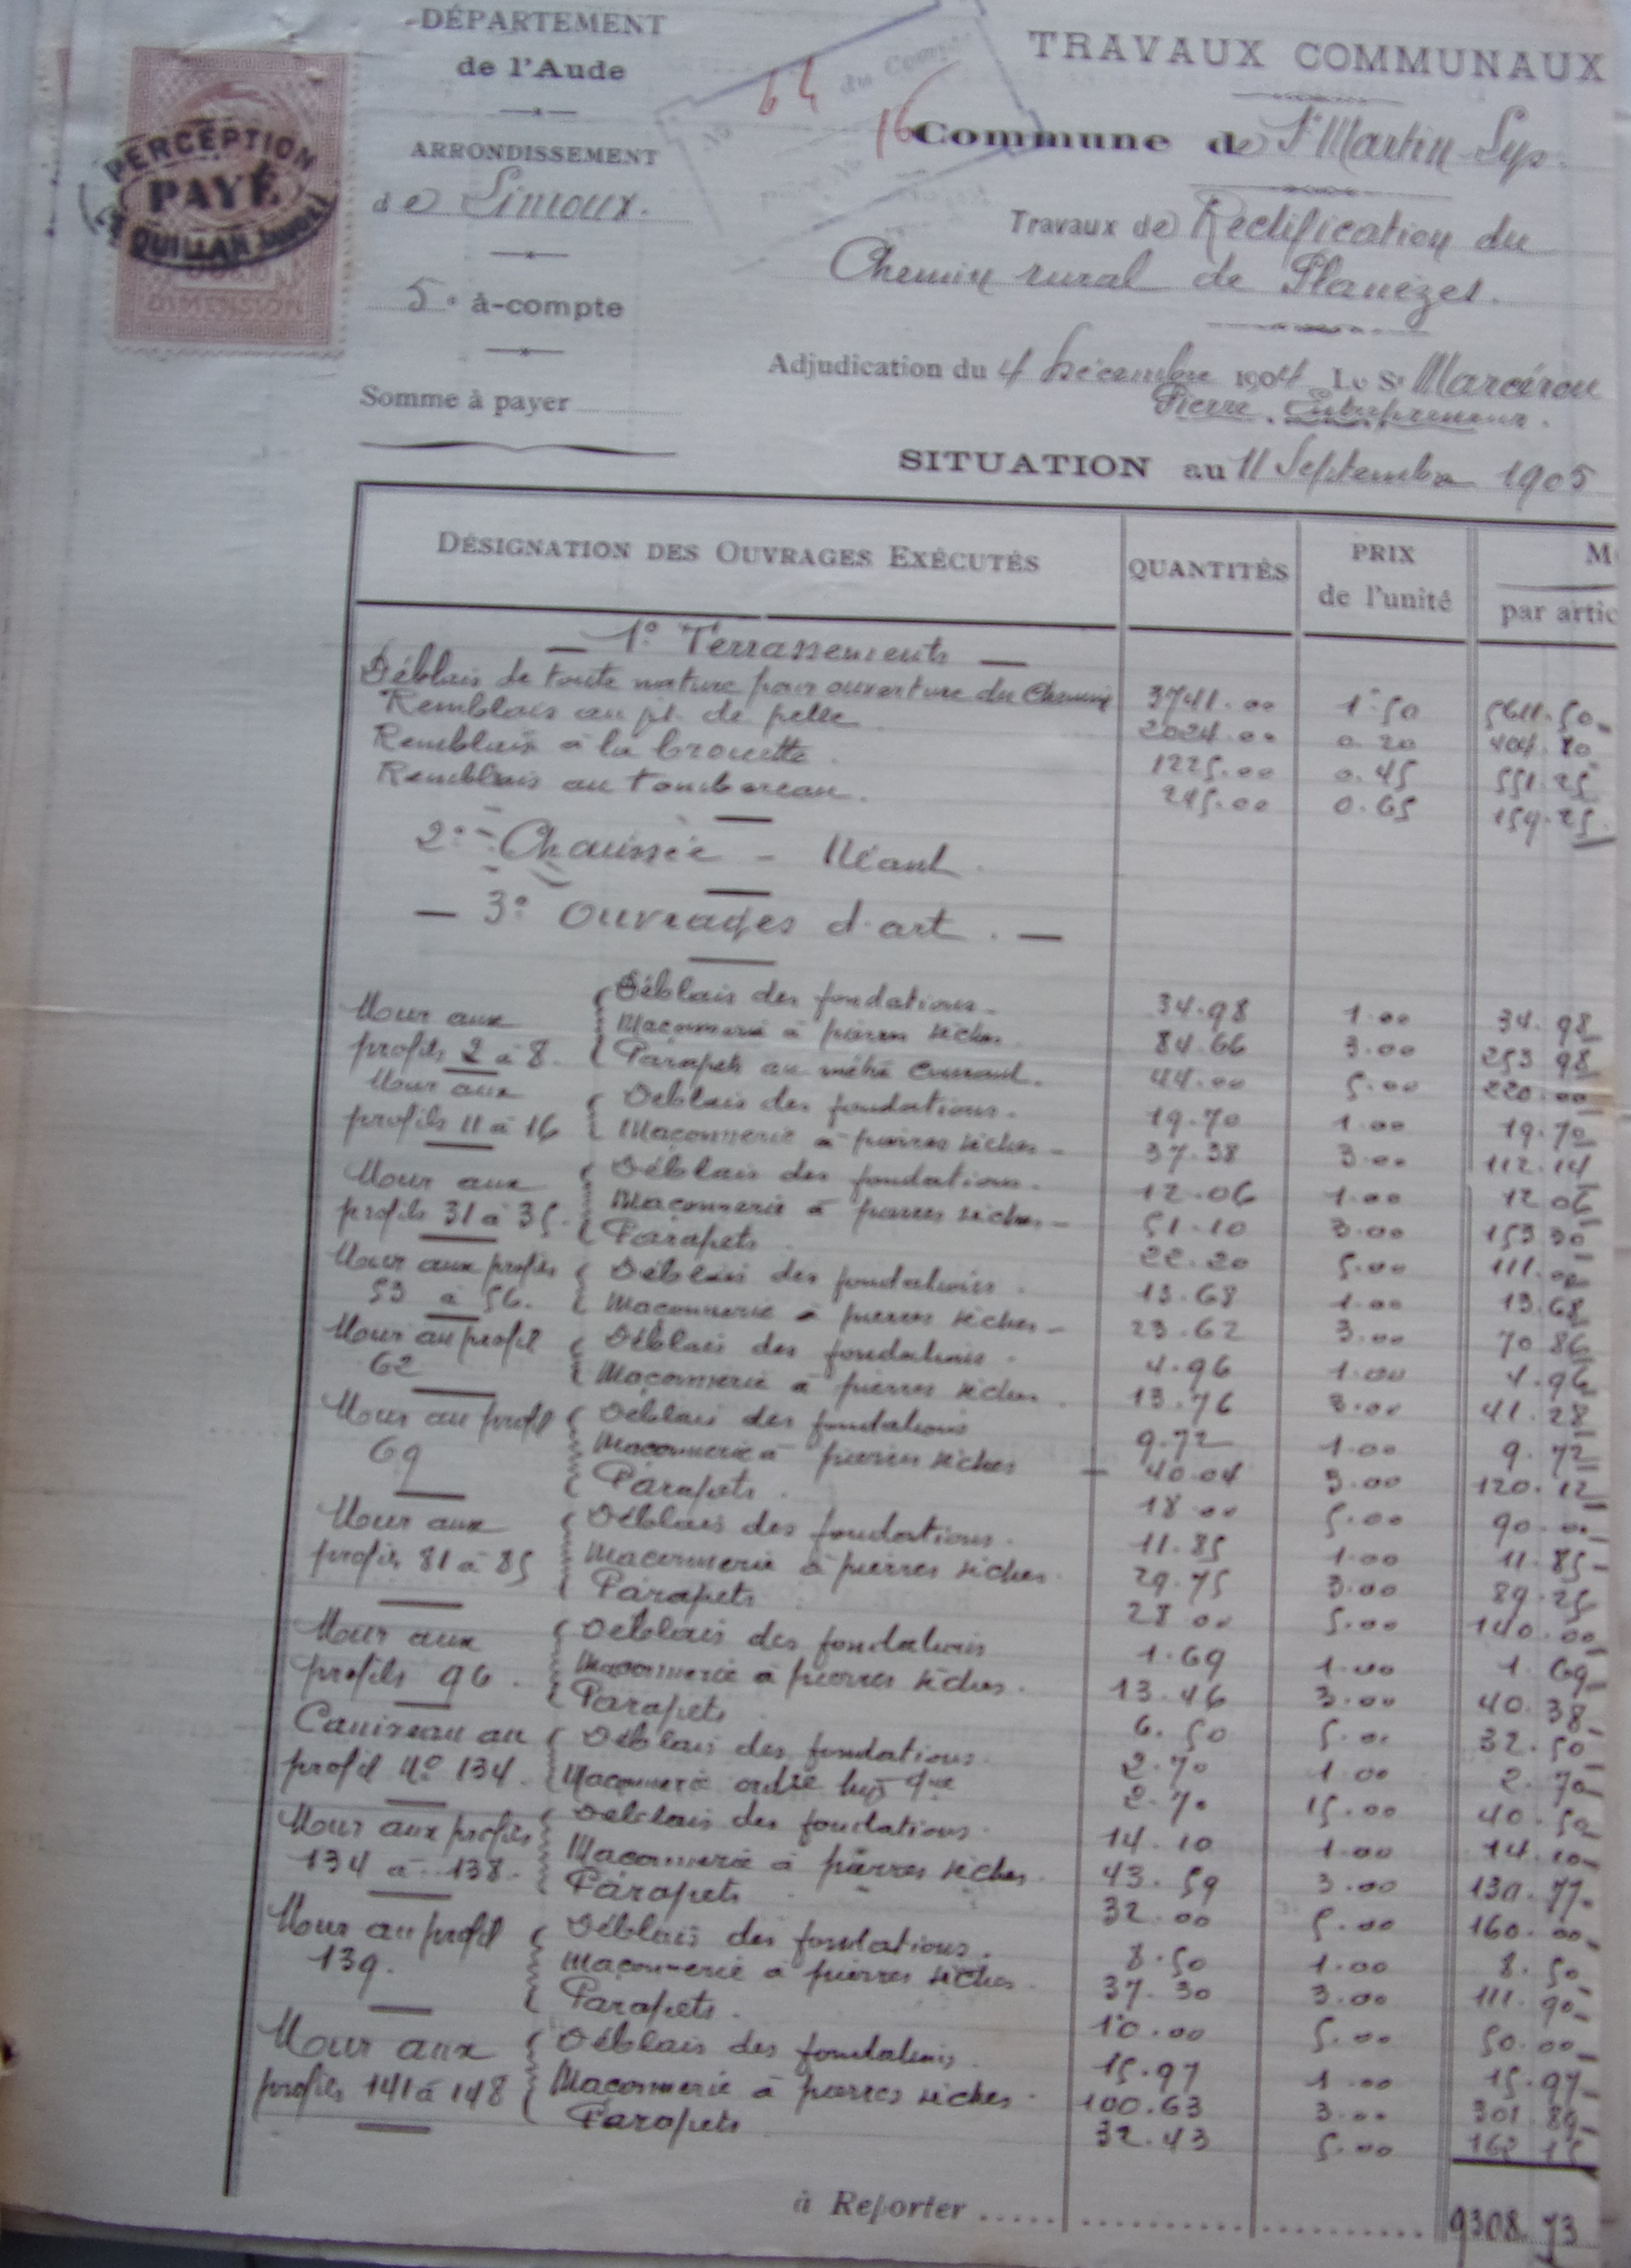 DÉPARTEMENT
de l'Aude
ARRONDISSEMENT
de Limoux.
5e à-compte
Somme à payer
PERCEPTION
PAYÉ
QUILLAN (AUDE)
DIMENSION
No 64 du Compte
16
TRAVAUX COMMUNAUX
Commune de St Martin-Lys.
Travaux de Rectification du
Chemin rural de Planèzes.
Adjudication du 4 Décembre 1904 Le Sr Marcérou
Pierre, Entrepreneur.
SITUATION au 11 Septembre 1905
DÉSIGNATION DES OUVRAGES EXÉCUTÉS QUANTITÉS PRIX de l'unité M par artic
— 1° Terrassements —
Déblais de toute nature pour ouverture du Chemin 3741.00 1.50 5611.50
Remblais au jet de pelle 2024.00 0.20 404.80
Remblais à la brouette. 1225.00 0.45 551.25
Remblais au tombereau. 245.00 0.65 159.25
2° - Chaussée - Néant.
— 3° Ouvrages d'art. —
Mur aux profils 2 à 8.
Déblais des fondations 34.98 1.00 34.98
Maçonnerie à pierres sèches 84.66 3.00 253.98
Parapets au mètre courant. 44.00 5.00 220.00
Mur aux profils 11 à 16
Déblais des fondations. 19.70 1.00 19.70
Maçonnerie à pierres sèches 37.38 3.00 112.14
Mur aux profils 31 à 35.
Déblais des fondations. 12.06 1.00 12.06
Maçonnerie à pierres sèches 51.10 3.00 153.30
Parapets 22.20 5.00 111.00
Mur aux profils 53 à 56.
Déblais des fondations. 13.68 1.00 13.68
Maçonnerie à pierres sèches 23.62 3.00 70.86
Mur au profil 62
Déblais des fondations. 4.96 1.00 4.96
Maçonnerie à pierres sèches 13.76 3.00 41.28
Mur au profil 69
Déblais des fondations 9.72 1.00 9.72
Maçonnerie à pierres sèches 40.04 3.00 120.12
Parapets. 18.00 5.00 90.00
Mur aux profils 81 à 85
Déblais des fondations. 11.85 1.00 11.85
Maçonnerie à pierres sèches. 29.75 3.00 89.25
Parapets 28.00 5.00 140.00
Mur aux profils 96.
Déblais des fondations 1.69 1.00 1.69
Maçonnerie à pierres sèches. 13.46 3.00 40.38
Parapets 6.50 5.00 32.50
Caniveau au profil N° 134.
Déblais des fondations. 2.70 1.00 2.70
Maçonnerie ordre hyd que 2.70 15.00 40.50
Mur aux profils 134 à 138.
Déblais des fondations. 14.10 1.00 14.10
Maçonnerie à pierres sèches. 43.59 3.00 130.77
Parapets 32.00 5.00 160.00
Mur au profil 139.
Déblais des fondations. 8.50 1.00 8.50
Maçonnerie à pierres sèches. 37.30 3.00 111.90
Parapets. 10.00 5.00 50.00
Mur aux profils 141 à 148
Déblais des fondations. 15.97 1.00 15.97
Maçonnerie à pierres sèches. 100.63 3.00 301.89
Parapets 32.43 5.00 162.15
à Reporter ..... 9308.73